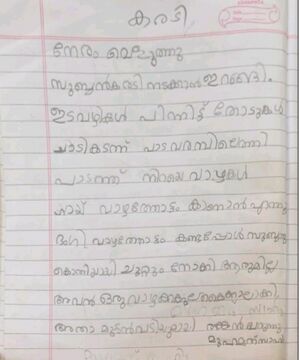 കരടി
നേരം വെളുത്തു
സുബ്ബൻകരടി നടക്കാൻ ഇറങ്ങി.
ഇടവഴികൾ പിന്നിട്ട് തോടുകൾ
ചാടികടന്ന് പാടവരമ്പിലെത്തി
പാടത്ത് നിറയെ വാഴകൾ
ഹായ് വാഴത്തോട്ടം കാണാൻ എന്തു
ഭംഗി വാഴത്തോട്ടം കണ്ടപ്പോൾ സുബ്ബനു
കൊതിയായി ചുറ്റും നോക്കി ആരുമില്ല
അവൻ ഒരു വാഴക്കുല കൈക്കലാക്കി
അതാ മുട്ടൻവടിയുമായി വരുന്നു